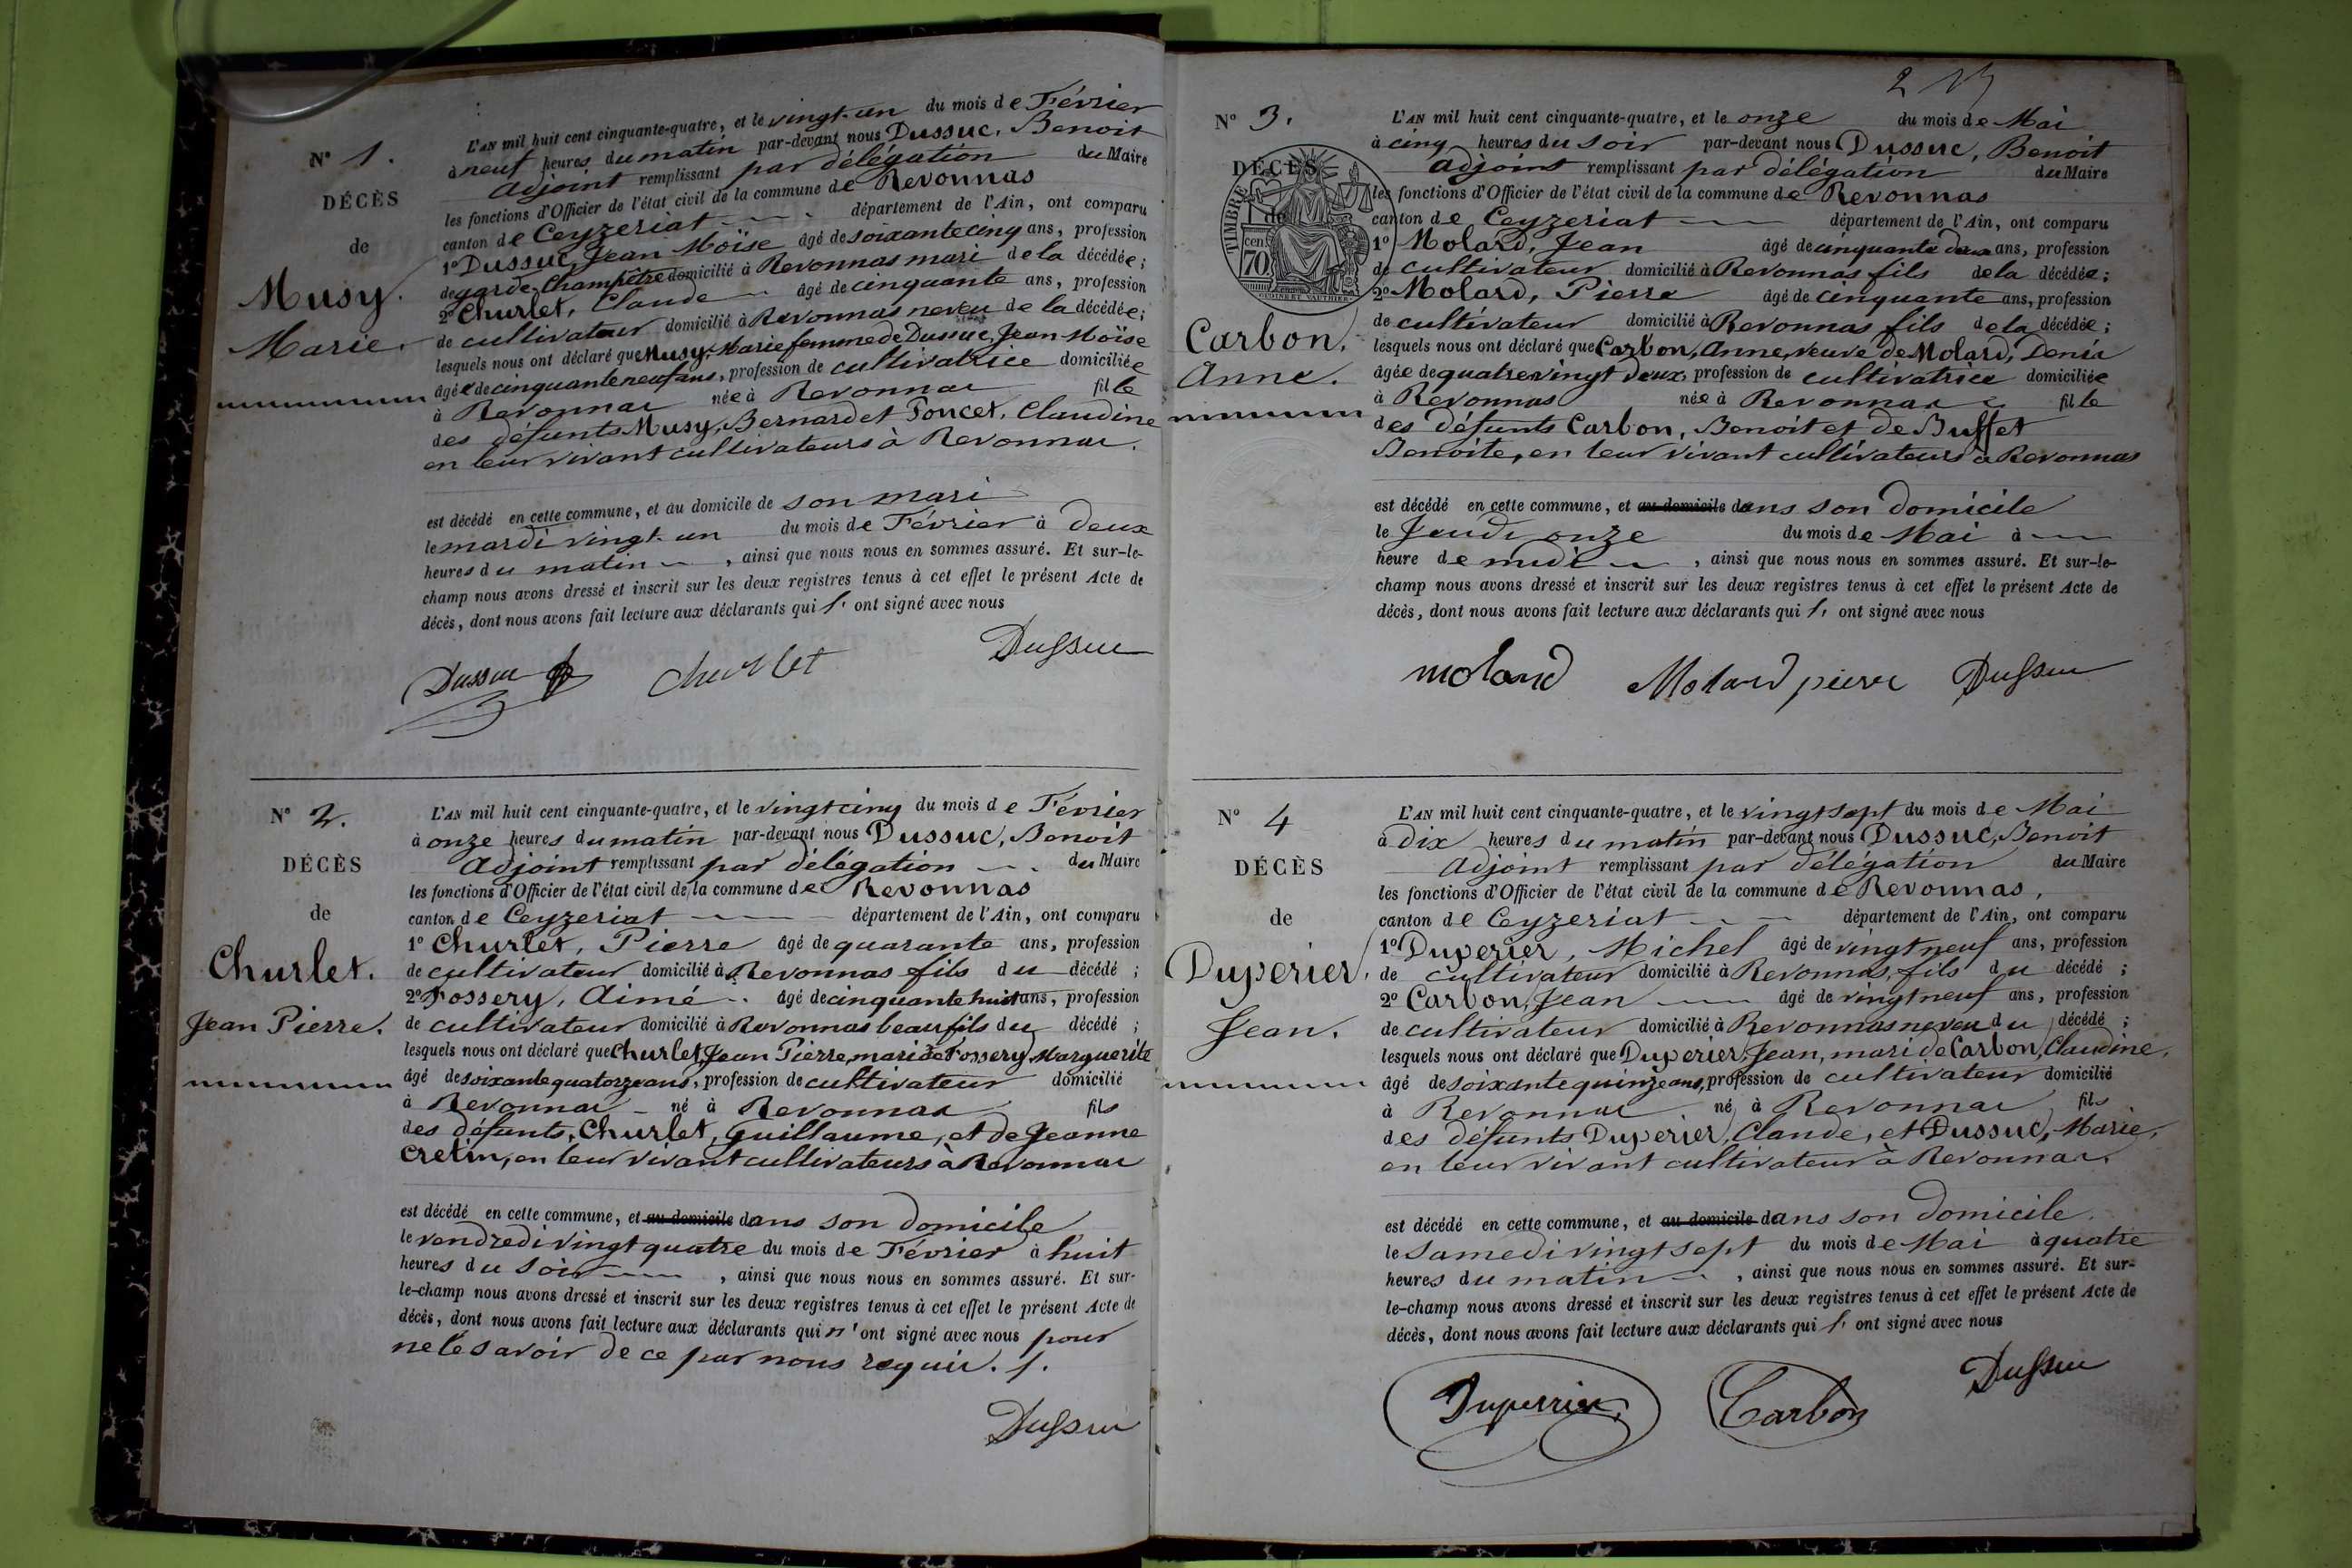 N° 1.
DÉCÈS
de
Musy.
Marie.
L'AN mil huit cent cinquante-quatre, et le vingt-un du mois de Février
à neuf heures du matin par-devant nous Dussuc, Benoit
adjoint remplissant par délégation du Maire
les fonctions d'Officier de l'état civil de la commune de Revonnas
canton de Ceyzeriat département de l'Ain, ont comparu
1° Dussuc, Jean Moïse âgé de soixante cinq ans, profession
de garde-Champêtre domicilié à Revonnas mari de la décédée;
2° Churlet, Claude âgé de cinquante ans, profession
de cultivateur domicilié à Revonnas neveu de la décédée;
lesquels nous ont déclaré que Musy, Marie femme de Dussuc, Jean Moïse
âgée de cinquante neuf ans, profession de cultivatrice domiciliée
à Revonnas née à Revonnas fille
des défunts Musy, Bernard et Poncet, Claudine
en leur vivant cultivateurs à Revonnas.
est décédé en cette commune, et au domicile de son mari
le mardi vingt-un du mois de Février à deux
heures du matin, ainsi que nous nous en sommes assuré. Et sur-le-
champ nous avons dressé et inscrit sur les deux registres tenus à cet effet le présent Acte de
décès, dont nous avons fait lecture aux déclarants qui l' ont signé avec nous
Dussuc Churlet Dussuc
N° 2.
DÉCÈS
de
Churlet.
Jean Pierre.
L'AN mil huit cent cinquante-quatre, et le vingt cinq du mois de Février
à onze heures du matin par-devant nous Dussuc, Benoit
adjoint remplissant par délégation du Maire
les fonctions d'Officier de l'état civil de la commune de Revonnas
canton de Ceyzeriat département de l'Ain, ont comparu
1° Churlet, Pierre âgé de quarante ans, profession
de cultivateur domicilié à Revonnas fils du décédé;
2° Fossery, Aimé âgé de cinquante huit ans, profession
de cultivateur domicilié à Revonnas beau fils du décédé;
lesquels nous ont déclaré que Churlet, Jean Pierre, mari de Fossery, Marguerite
âgé de soixante quatorze ans, profession de cultivateur domicilié
à Revonnas né à Revonnas fils
des défunts, Churlet, Guillaume, et de Jeanne
Cretin, en leur vivant cultivateurs à Revonnas
est décédé en cette commune, et au domicile dans son domicile
le vendredi vingt quatre du mois de Février à huit
heures du soir, ainsi que nous nous en sommes assuré. Et sur-
le-champ nous avons dressé et inscrit sur les deux registres tenus à cet effet le présent Acte de
décès, dont nous avons fait lecture aux déclarants qui n'ont signé avec nous pour
ne le savoir de ce par nous requis.
Dussuc
N° 3.
DÉCÈS
de
TIMBRE
cen 70
Carbon,
Anne.
L'AN mil huit cent cinquante-quatre, et le onze du mois de Mai
à cinq heures du soir par-devant nous Dussuc, Benoit
adjoint remplissant par délégation du Maire
les fonctions d'Officier de l'état civil de la commune de Revonnas
canton de Ceyzeriat département de l'Ain, ont comparu
1° Molard, Jean âgé de cinquante deux ans, profession
de cultivateur domicilié à Revonnas fils de la décédée;
2° Molard, Pierre âgé de cinquante ans, profession
de cultivateur domicilié à Revonnas fils de la décédée;
lesquels nous ont déclaré que Carbon, Anne, veuve de Molard, Denis
âgée de quatre vingt deux, profession de cultivatrice domiciliée
à Revonnas née à Revonnas fille
des défunts Carbon, Benoit et de Buffet
Benoite, en leur vivant cultivateurs à Revonnas
est décédé en cette commune, et au domicile dans son domicile
le Jeudi onze du mois de Mai à
heure de midi, ainsi que nous nous en sommes assuré. Et sur-le-
champ nous avons dressé et inscrit sur les deux registres tenus à cet effet le présent Acte de
décès, dont nous avons fait lecture aux déclarants qui l' ont signé avec nous
molard Molard pierre Dussuc
N° 4
DÉCÈS
de
Duperier,
Jean.
L'AN mil huit cent cinquante-quatre, et le vingt sept du mois de Mai
à dix heures du matin par-devant nous Dussuc, Benoit
adjoint remplissant par délégation du Maire
les fonctions d'Officier de l'état civil de la commune de Revonnas,
canton de Ceyzeriat département de l'Ain, ont comparu
1° Duperier, Michel âgé de vingt neuf ans, profession
de cultivateur domicilié à Revonnas, fils du décédé;
2° Carbon, Jean âgé de vingt neuf ans, profession
de cultivateur domicilié à Revonnas neveu du décédé;
lesquels nous ont déclaré que Duperier, Jean, mari de Carbon, Claudine,
âgé de soixante quinze ans, profession de cultivateur domicilié
à Revonnas né à Revonnas fils
des défunts Duperier, Claude, et Dussuc, Marie,
en leur vivant cultivateur à Revonnas.
est décédé en cette commune, et au domicile dans son domicile.
le samedi vingt sept du mois de Mai à quatre
heures du matin, ainsi que nous nous en sommes assuré. Et sur-
le-champ nous avons dressé et inscrit sur les deux registres tenus à cet effet le présent Acte de
décès, dont nous avons fait lecture aux déclarants qui l' ont signé avec nous
Duperrier Carbon Dussuc